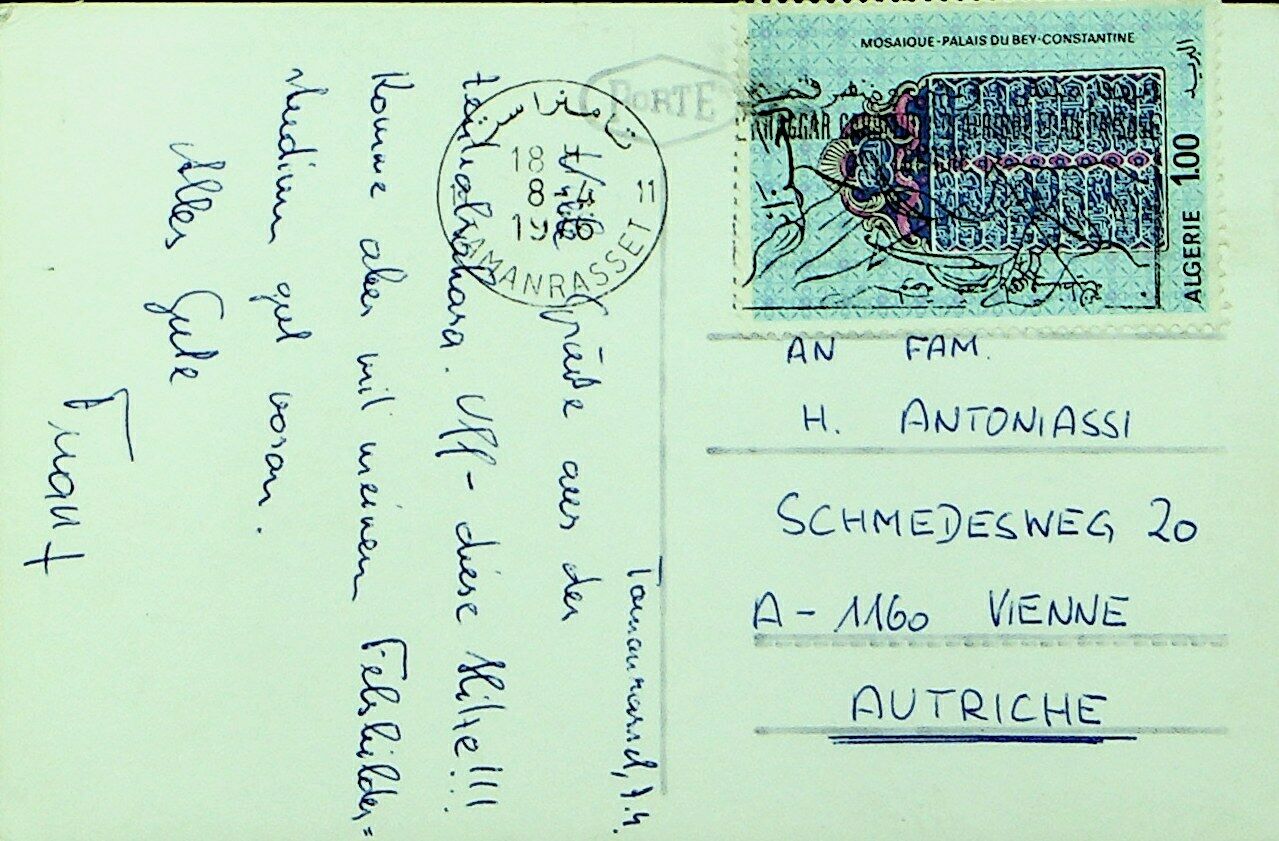 Tamanrasset, 7.4.
Grüße aus der
Zentralsahara. Uff - diese Hitze!!!
Komme aber mit meinem Felsbilder=
studium gut voran.
Alles Gute
Franz
PORTE
18
8 - 4
11
TAMANRASSET
تامنراست
MOSAIQUE-PALAIS DU BEY-CONSTANTINE
البريد
ALGERIE 1.00
AN FAM.
H. ANTONIASSI
SCHMEDESWEG 20
A - 1160 VIENNE
AUTRICHE